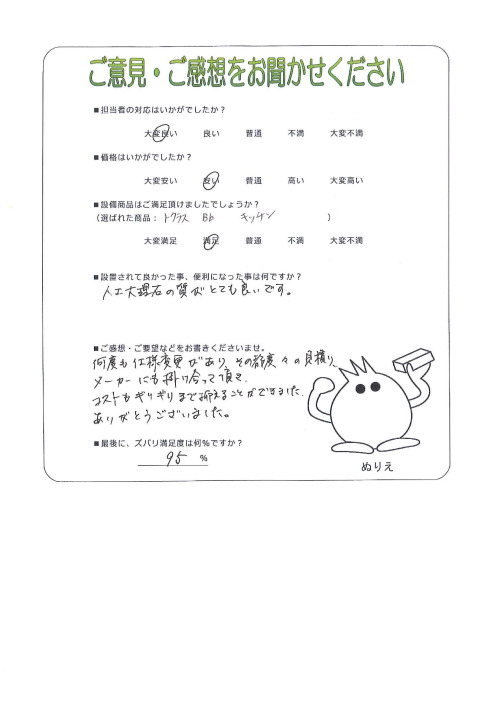 ご意見・ご感想をお聞かせください
■担当者の対応はいかがでしたか?
大変良い 良い 普通 不満 大変不満
■価格はいかがでしたか?
大変安い 安い 普通 高い 大変高い
■設備商品はご満足頂けましたでしょうか?
(選ばれた商品: トクラス Bb キッチン )
大変満足 満足 普通 不満 大変不満
■設置されて良かった事、便利になった事は何ですか?
人工大理石の質がとても良いです。
■ご感想・ご要望などをお書きくださいませ。
何度も仕様変更があり、その都度々の見積り、
メーカーにも掛け合って頂き、
コストもぎりぎりまで抑えることができました。
ありがとうございました。
■最後に、ズバリ満足度は何%ですか?
95 %
ぬりえ